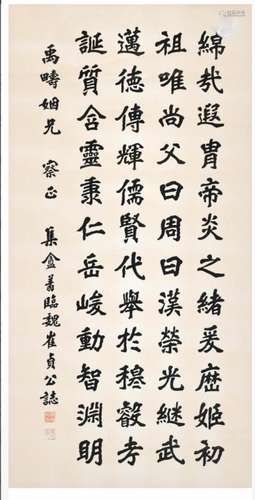 綿哉遐胄帝炎之緒爰歷姬初
祖唯尚父曰周曰漢榮光継武
邁德傳輝儒賢代舉於穆叡考
誕質含靈秉仁岳峻動智淵明
禹疇姻兄 察正 集盦蕭臨魏崔貞公誌